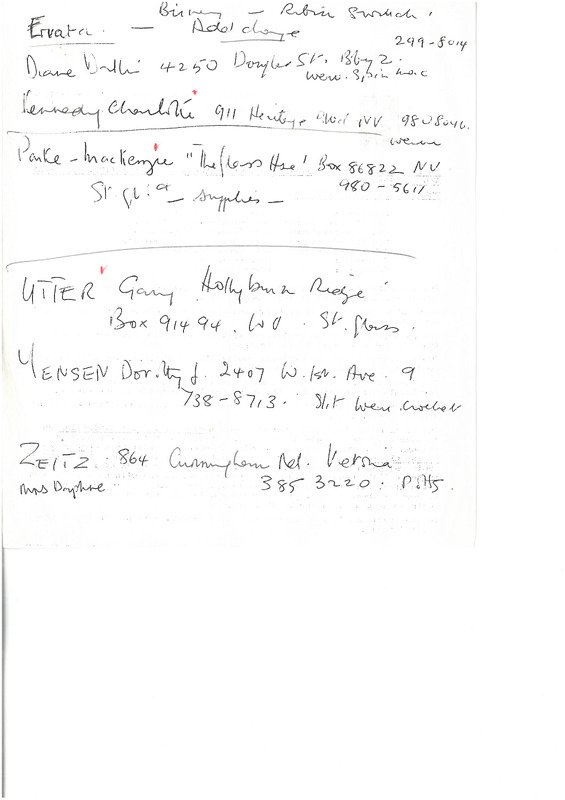 Errata — Addl change
299-8014
Diane 4250 Douglas St. Bby 2.
weav. Spin
Kennedy Charlotte 911 Heritage NV 980 8046.
weave
Parke-Mackenzie "The Glass Hse" Box 86822 NV
980-5611
St. gl. supplies —
UTTER Gary Hollyburn Ridge
Box 91494. WV. St. glass.
YENSEN Dorothy J. 2407 W. 1st. Ave. 9
738-8713. weav. crochet
ZEITZ. 864 Cunningham Rd. Victoria
Mrs Daphne 385 3220. Potts.